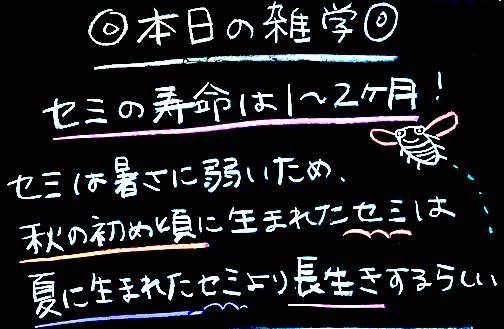 ◎本日の雑学◎
セミの寿命は1~2ヶ月!
セミは暑さに弱いため、
秋の初め頃に生まれたセミは
夏に生まれたセミより長生きするらしい